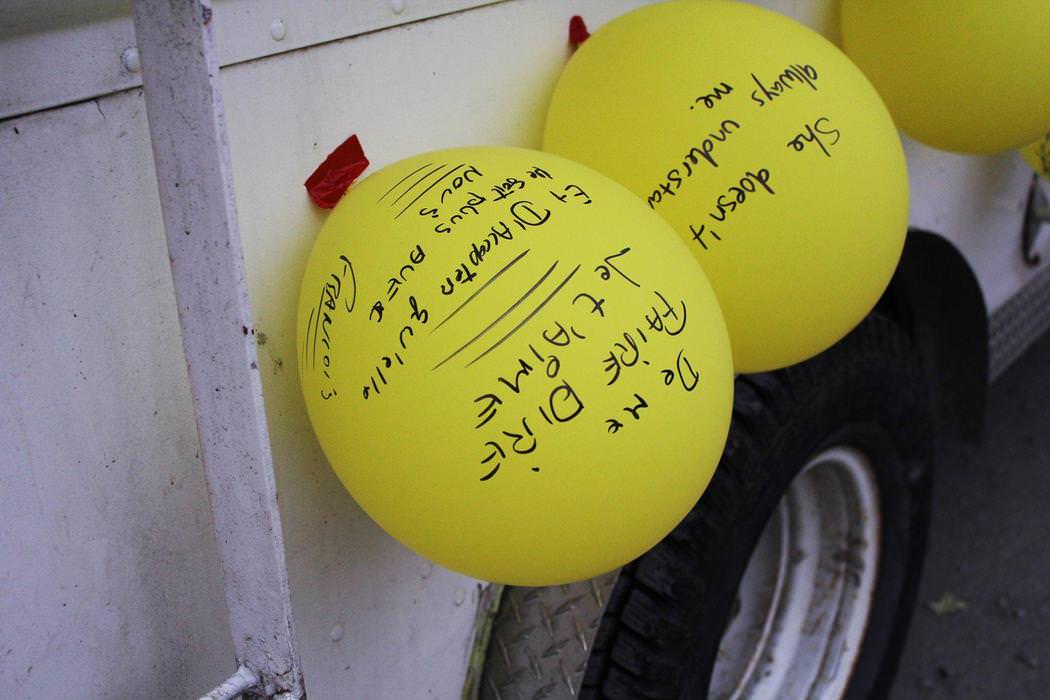 De me
FAIRE DIRE
Je t'AIME
Et D'Accepter qu'elle
Ne soit plus AVEC
Nous
FRANCOIS
She doesn't
always understa
me.